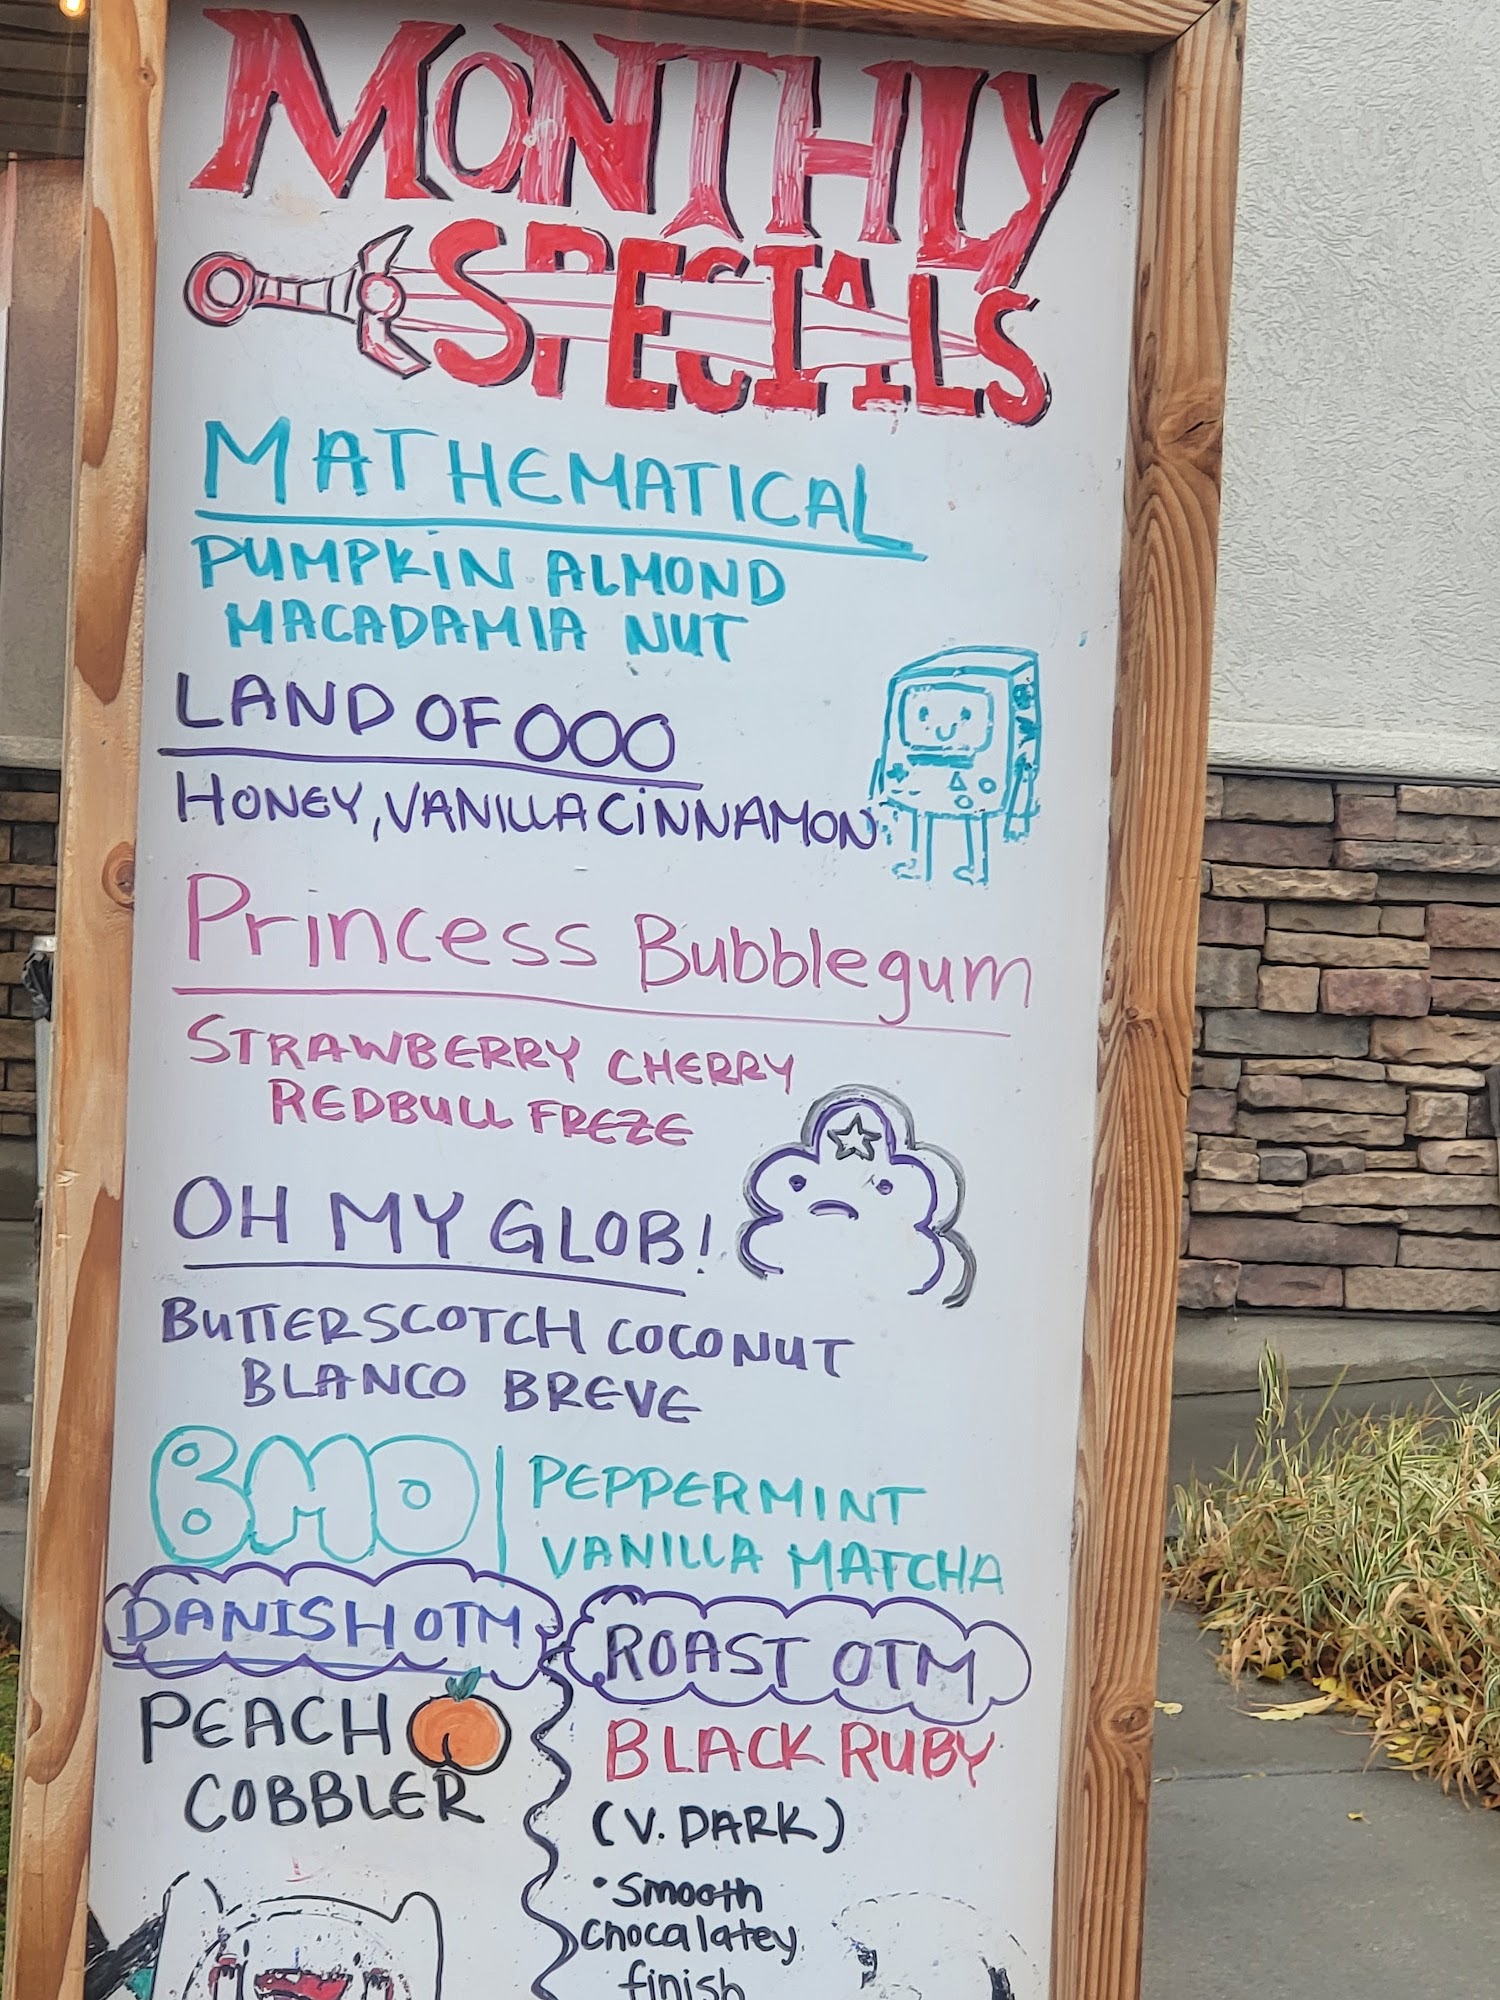 MONTHLY
SPECIALS
MATHEMATICAL
PUMPKIN ALMOND
MACADAMIA NUT
LAND OF OOO
HONEY, VANILLA CINNAMON
Princess Bubblegum
STRAWBERRY CHERRY
REDBULL FREZE
OH MY GLOB!
BUTTERSCOTCH COCONUT
BLANCO BREVE
BMO
PEPPERMINT
VANILLA MATCHA
DANISH OTM
PEACH
COBBLER
ROAST OTM
BLACK RUBY
(V. DARK)
• Smooth
chocalatey
finish